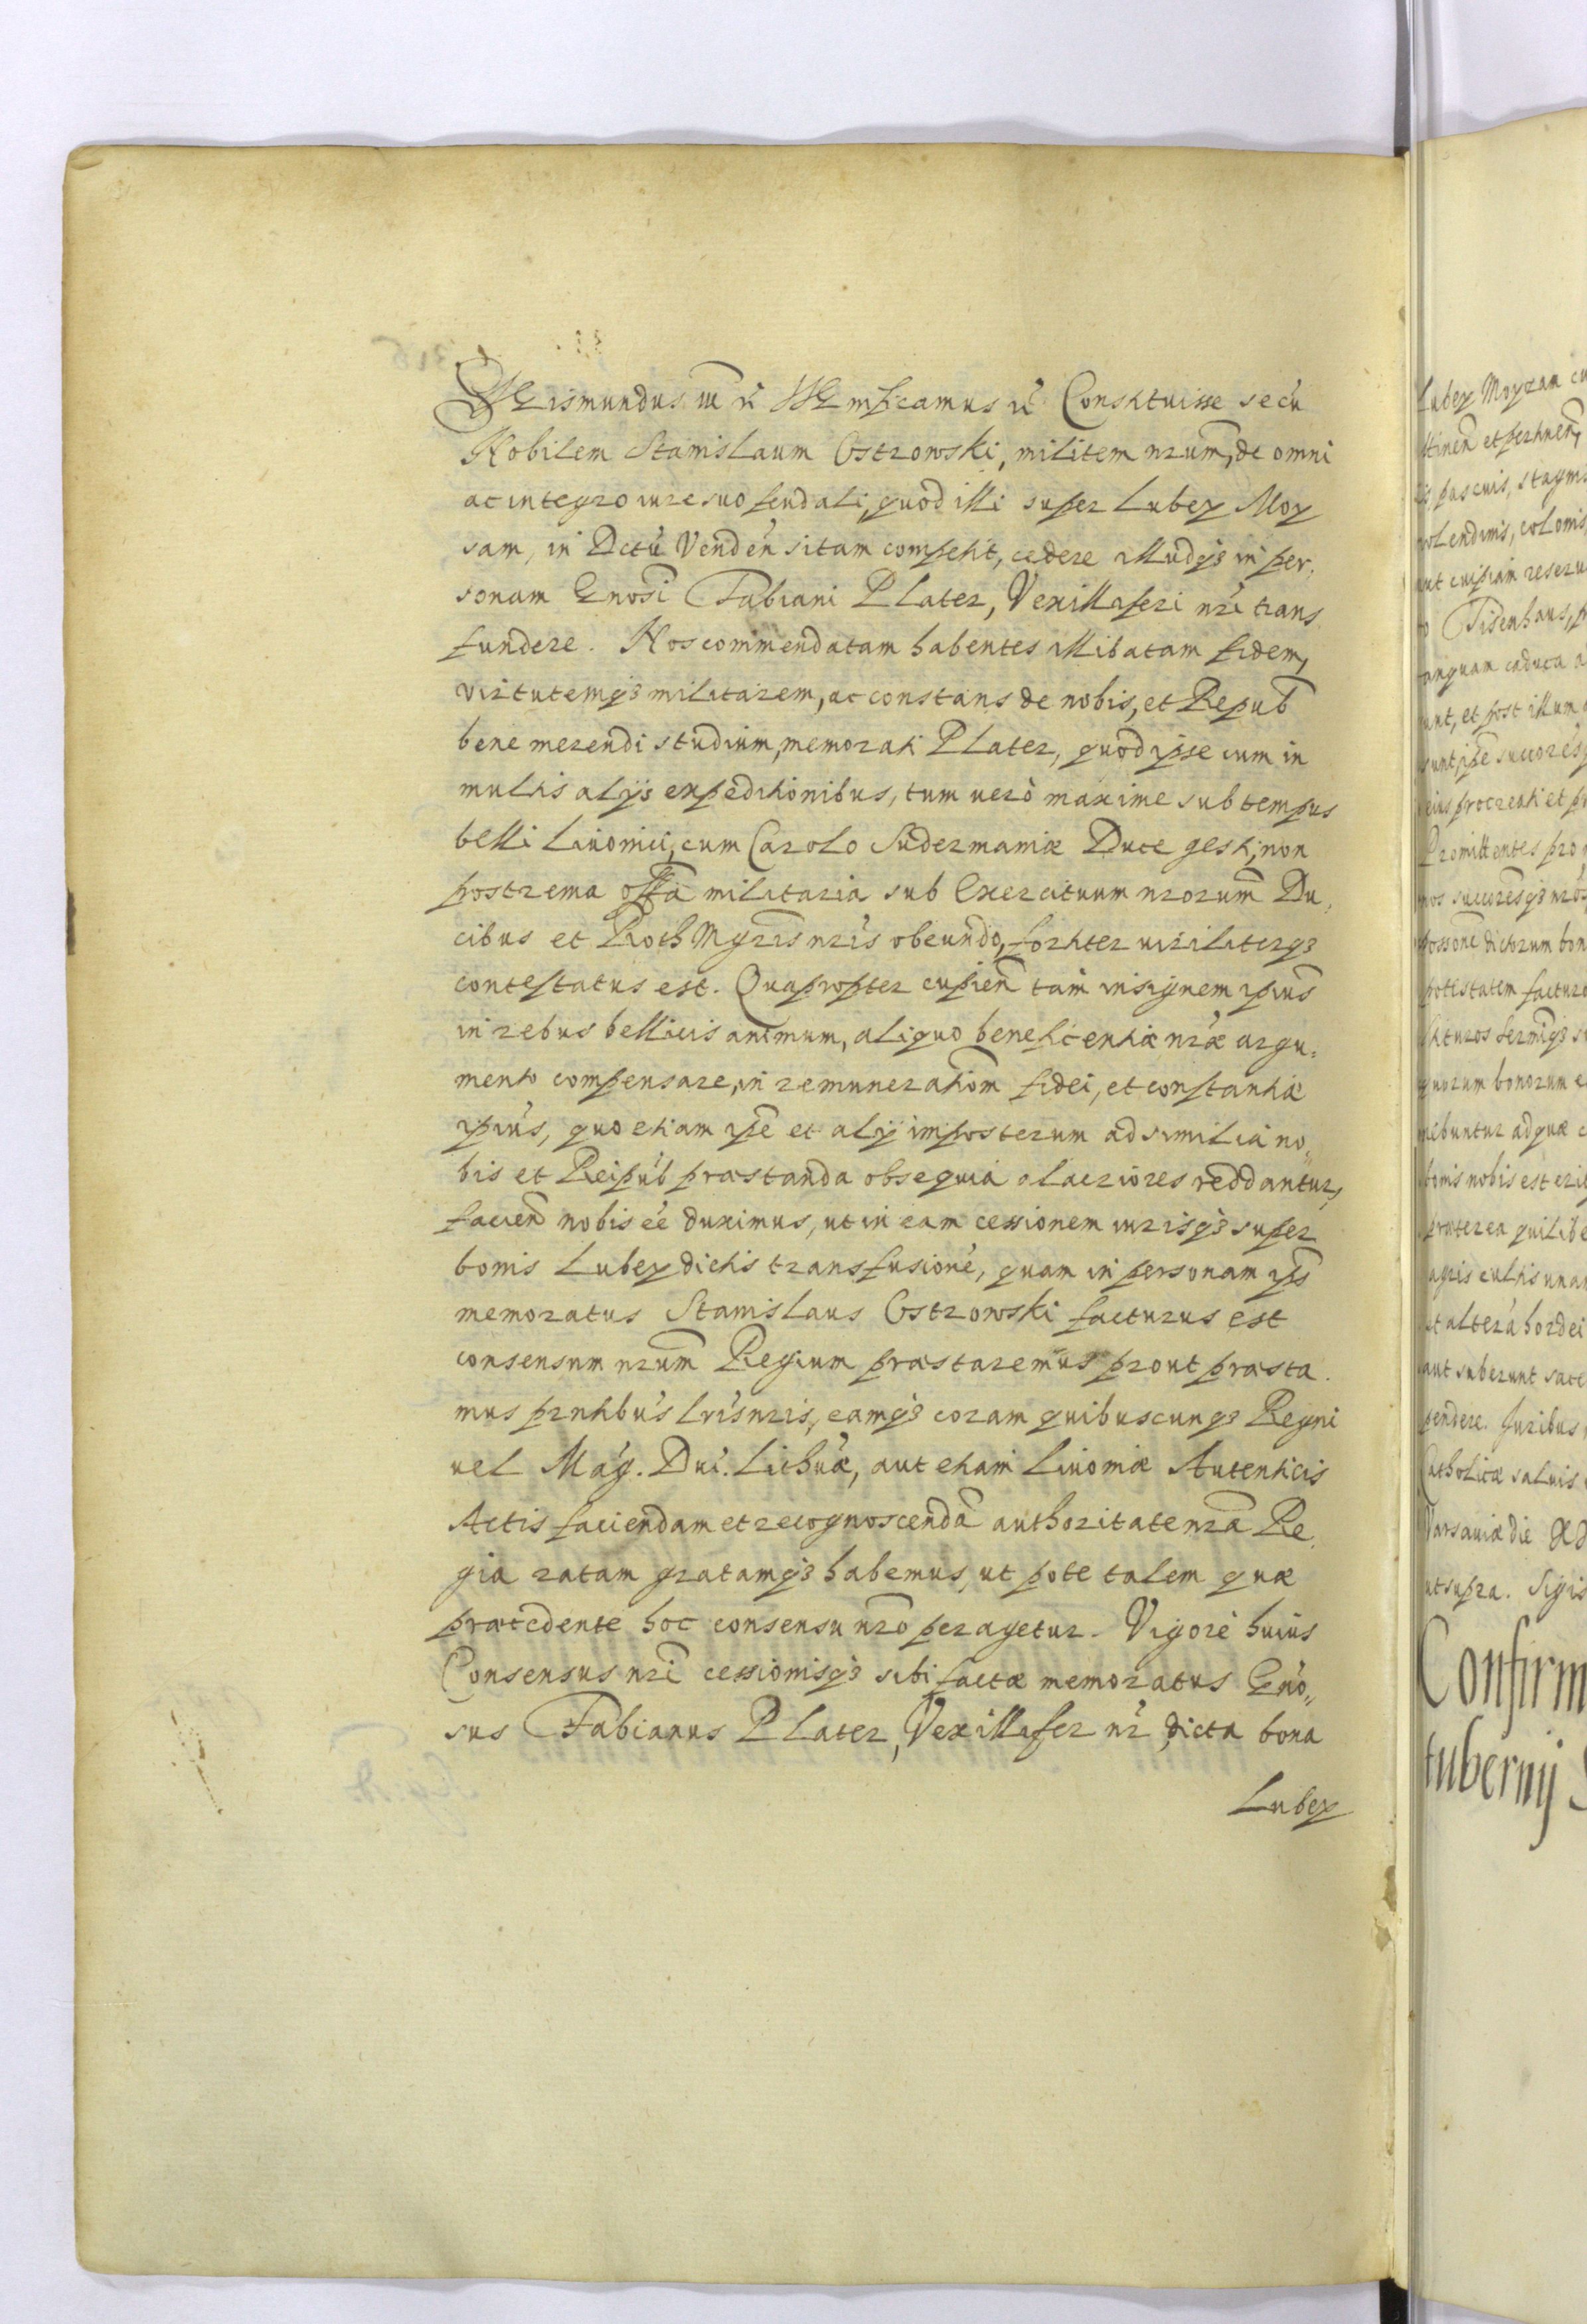 Sigismundus III etc Significamus etc Constituisse secu
Nobilem Stanislaum Ostrowski, militem nrum, de omni
ac integro iure suo feudali, quod illi super Lubey Moy
sam, in Dctu Venden sitam competit, cedere illudq3 in per,
sonam Gnosi Fabiani Plater, Vexillaferi nri trans
fundere. Nos commendatam habentes illibatam fidem,
virtutemq3 militarem, ac constans de nobis, et Repub
bene merendi studium, memorati Plater, quod ipse cum in
multis alijs expeditionibus, tum verò maxime sub tempus
belli Livonici, cum Carolo Sudermaniæ Duce gesti, non
postrema offa militaria sub Exercituum nrorum Du,
cibus et RothMgris nris obeundo, fortiter viriliterq3
contestatus est. Quapropter cupien tam insignem ipius
in rebus bellicis animum, aliquo beneficentiæ nræ argu,
mento compensare, in remunerationem fidei, et constantiæ
ipius, quo etiam ipe et alij imposterum ad similia no„
bis et Reipub præstanda obsequia alacriores reddantur,
facien nobis ee duximus, ut in eam cessionem iurisq3 super
bonis Lubey dictis transfusione, quam in personam ips
memoratus Stanislaus Ostrowski facturus est
consensum nrum Regium præstaremus prout præsta.
mus prntibus lris nris, eamq3 coram quibuscunq3 Regni
vel Mag. Du. Lithuæ, aut etiam Livoniæ Autenticis
Actis faciendam et recognoscenda authoritate nra Re,
gia ratam gratamq3 habemus, ut pote talem quæ
præcedente hoc consensu nro peragetur. Vigore huius
Consensus nri cessionisq3 sibi factæ memoratus Gno„
sus Fabianus Plater, Vexillafer nr, dicta bona
Lubey
Lubey Moyzan cu
et pertinen,
pascuis, stagnis
molendinis, colonis
Tisenhaus,
tanquam caduca a
et post illum
procreati et
Promittentes pro
dictorum bon
potestatem facturo
bonorum e
ad quæ c
bonis nobis est
præterea quilibe
agris cultis unam
altera hordei
aut suberunt sate
pendere. Juribus
Catholicæ salvis
Varsaviæ die
ut supra. Sigis
Confirm
tubernij